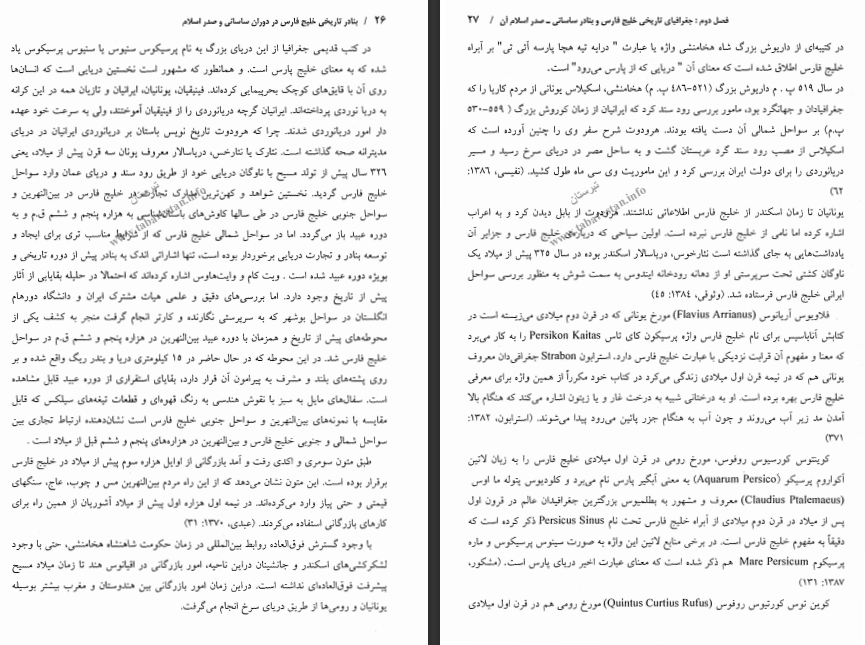 ۲۶ / بنادر تاریخی خلیج فارس در دوران ساسانی و صدر اسلام
در کتب قدیمی جغرافیا از این دریای بزرگ به نام پرسیکوس سنیوس یا سنیوس پرسیکوس یاد
شده که به معنای خلیج پارس است. و همانطور که مشهور است نخستین دریایی است که انسان‌ها
روی آن با قایق‌های کوچک بحرپیمایی کرده‌اند. فینیقیان، یونانیان، ایرانیان و تازیان همه در این کرانه
به دریا نوردی پرداخته‌اند. ایرانیان گرچه دریانوردی را از فینیقیان آموختند، ولی به سرعت خود عهده
دار امور دریانوردی شدند. چرا که هرودوت تاریخ نویس باستان بر دریانوردی ایرانیان در دریای
مدیترانه صحه گذاشته است. نئارک یا نئارخس، دریاسالار معروف یونان سه قرن پیش از میلاد، یعنی
۳۲۶ سال پیش از تولد مسیح با ناوگان دریایی خود از طریق رود سند و دریای عمان وارد سواحل
خلیج فارس گردید. نخستین شواهد و کهن‌ترین مدارک تجارت در خلیج فارس در بین‌النهرین و
سواحل جنوبی خلیج فارس در طی سالها کاوش‌های باستان‌شناسی به هزاره پنجم و ششم ق.م و به
دوره عبید باز می‌گردد. اما در سواحل شمالی خلیج فارس که از شرایط مناسب تری برای ایجاد و
توسعه بنادر و تجارت دریایی برخوردار بوده است، تنها اشاراتی اندک به بنادر پیش از دوره تاریخی و
بویژه دوره عبید شده است . ویت کام و وایت‌هاوس اشاره کرده‌اند که احتمالا در حلیله بقایایی از آثار
پیش از تاریخ وجود دارد. اما بررسی‌های دقیق و علمی هیات مشترک ایران و دانشگاه دورهام
انگلستان در سواحل بوشهر که به سرپرستی نگارنده و کارتر انجام گرفت منجر به کشف یکی از
محوطه‌های پیش از تاریخ و همزمان با دوره عبید بین‌النهرین در هزاره پنجم و ششم ق.م در سواحل
خلیج فارس شد. در این محوطه که در حال حاضر در ۱۵ کیلومتری دریا و بندر ریگ واقع شده و بر
روی پشته‌های بلند و مشرف به پیرامون آن قرار دارد، بقایای استقراری از دوره عبید قابل مشاهده
است. سفال‌های مایل به سبز با نقوش هندسی به رنگ قهوه‌ای و قطعات تیغه‌های سیلکس که قابل
مقایسه با نمونه‌های بین‌النهرین و سواحل جنوبی خلیج فارس است نشان‌دهنده ارتباط تجاری بین
سواحل شمالی و جنوبی خلیج فارس و بین‌النهرین در هزاره‌های پنجم و ششم قبل از میلاد است .
طبق متون سومری و اکدی رفت و آمد بازرگانی از اوایل هزاره سوم پیش از میلاد در خلیج فارس
برقرار بوده است. این متون نشان می‌دهد که از این راه مردم بین‌النهرین مس و چوب، عاج، سنگهای
قیمتی و حتی پیاز وارد می‌کرده‌اند. در نیمه اول هزاره اول پیش از میلاد آشوریان از همین راه برای
کارهای بازرگانی استفاده می‌کردند. (عبدی، ۱۳۷۰: ۳۱)
با وجود گسترش فوق‌العاده روابط بین‌المللی در زمان حکومت شاهنشاه هخامنشی، حتی با وجود
لشکرکشی‌های اسکندر و جانشینان دراین ناحیه، امور بازرگانی در اقیانوس هند تا زمان میلاد مسیح
پیشرفت فوق‌العاده‌ای نداشته است. دراین زمان امور بازرگانی بین هندوستان و مغرب بیشتر بوسیله
یونانیان و رومی‌ها از طریق دریای سرخ انجام می‌گرفت.
تبرستان
www.tabarestan.info
فصل دوم : جغرافیای تاریخی خلیج فارس و بنادر ساسانی ـ صدر اسلام آن / ۲۷
در کتیبه‌ای از داریوش بزرگ شاه هخامنشی واژه یا عبارت " درایه تیه هچا پارسه آئی تی" بر آبراه
خلیج فارس اطلاق شده است که معنای آن " دریایی که از پارس می‌رود" است.
در سال ۵۱۹ پ . م داریوش بزرگ (۵۲۱-۴۸۶ پ. م) هخامنشی، اسکیلاس یونانی از مردم کاریا را که
جغرافیادان و جهانگرد بود، مامور بررسی رود سند کرد که ایرانیان از زمان کوروش بزرگ ( ۵۵۹-۵۳۰
پ.م) بر سواحل شمالی آن دست یافته بودند. هرودوت شرح سفر وی را چنین آورده است که
اسکیلاس از مصب رود سند گرد عربستان گشت و به ساحل مصر در دریای سرخ رسید و مسیر
دریانوردی را برای دولت ایران بررسی کرد و این ماموریت وی سی ماه طول کشید. (نفیسی، ۱۳۸۶:
۶۲)
یونانیان تا زمان اسکندر از خلیج فارس اطلاعاتی نداشتند. هرودوت از بابل دیدن کرد و به اعراب
اشاره کرده اما نامی از خلیج فارس نبرده است. اولین سیاحی که درباره‌ی خلیج فارس و جزایر آن
یادداشت‌هایی به جای گذاشته است نئارخوس، دریاسالار اسکندر بوده در سال ۳۲۵ پیش از میلاد یک
ناوگان کشتی تحت سرپرستی او از دهانه رودخانه ایندوس به سمت شوش به منظور بررسی سواحل
ایرانی خلیج فارس فرستاده شد. (وثوقی، ۱۳۸۴: ۴۵)
فلاویوس آریانوس (Flavius Arrianus) مورخ یونانی که در قرن دوم میلادی می‌زیسته است در
کتابش آناباسیس برای نام خلیج فارس واژه پرسیکون کای تاس Persikon Kaitas را به کار می‌برد
که معنا و مفهوم آن قرابت نزدیکی با عبارت خلیج فارس دارد. استرابون Strabon جغرافی‌دان معروف
یونانی هم که در نیمه قرن اول میلادی زندگی می‌کرد در کتاب خود مکرراً از همین واژه برای معرفی
خلیج فارس بهره برده است. او به درختانی شبیه به درخت غار و یا زیتون اشاره می‌کند که هنگام بالا
آمدن مد زیر آب می‌روند و چون آب به هنگام جزر پائین می‌رود پیدا می‌شوند. (استرابون، ۱۳۸۲:
۳۷۱)
کوینتوس کورسیوس روفوس، مورخ رومی در قرن اول میلادی خلیج فارس را به زبان لاتین
آکواروم پرسیکو (Aquarum Persico) به معنی آبگیر پارس نام می‌برد و کلودیوس پتوله ما اوس
(Claudius Ptalemaeus) معروف و مشهور به بطلمیوس بزرگترین جغرافیدان عالم در قرون اول
پس از میلاد در قرن دوم میلادی از آبراه خلیج فارس تحت نام Persicus Sinus ذکر کرده است که
دقیقاً به مفهوم خلیج فارس است. در برخی منابع لاتین این واژه به صورت سینوس پرسیکوس و ماره
پرسیکوم Mare Persicum هم ذکر شده است که معنای عبارت اخیر دریای پارس است. (مشکور،
۱۳۸۷: ۱۳۱)
کوین توس کورتیوس روفوس (Quintus Curtius Rufus) مورخ رومی هم در قرن اول میلادی
تبرستان
www.tabarestan.info